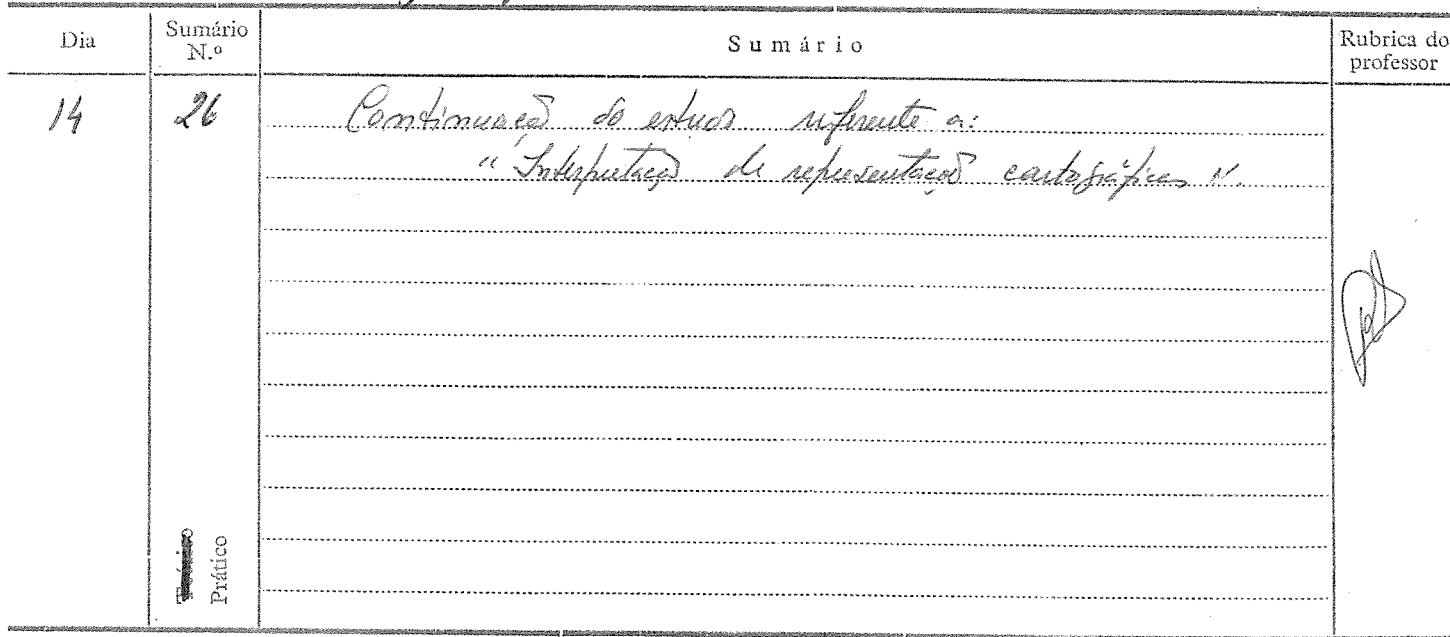 Dia
Sumário N.º
Sumário
Rubrica do professor
14
26
Continuação do estudo referente a:
"Interpretação de representações cartográficas".
Teórico
Prático